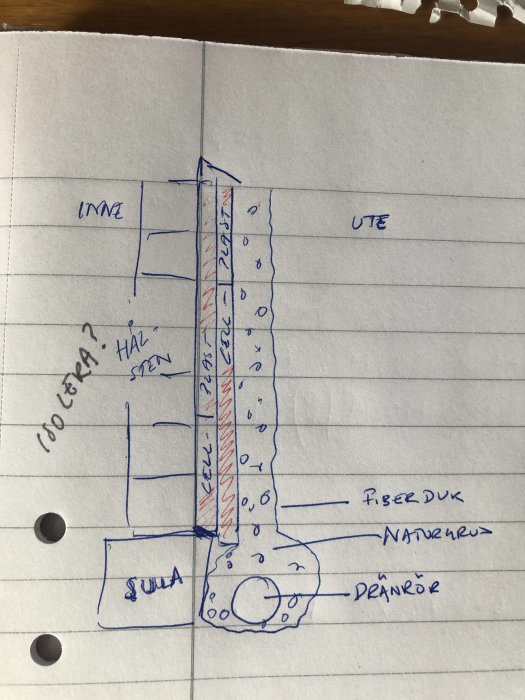 INNE
UTE
CELL- PLAST
CELL- PLAST
HÅL-
STEN
ISOLERA?
FIBERDUK
NATURGRUS
SULA
DRÄNRÖR